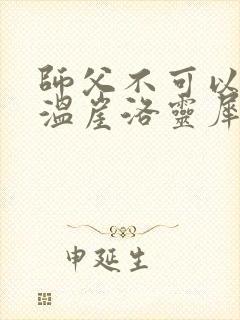 師父不可以
溫崖洛靈犀
申延生